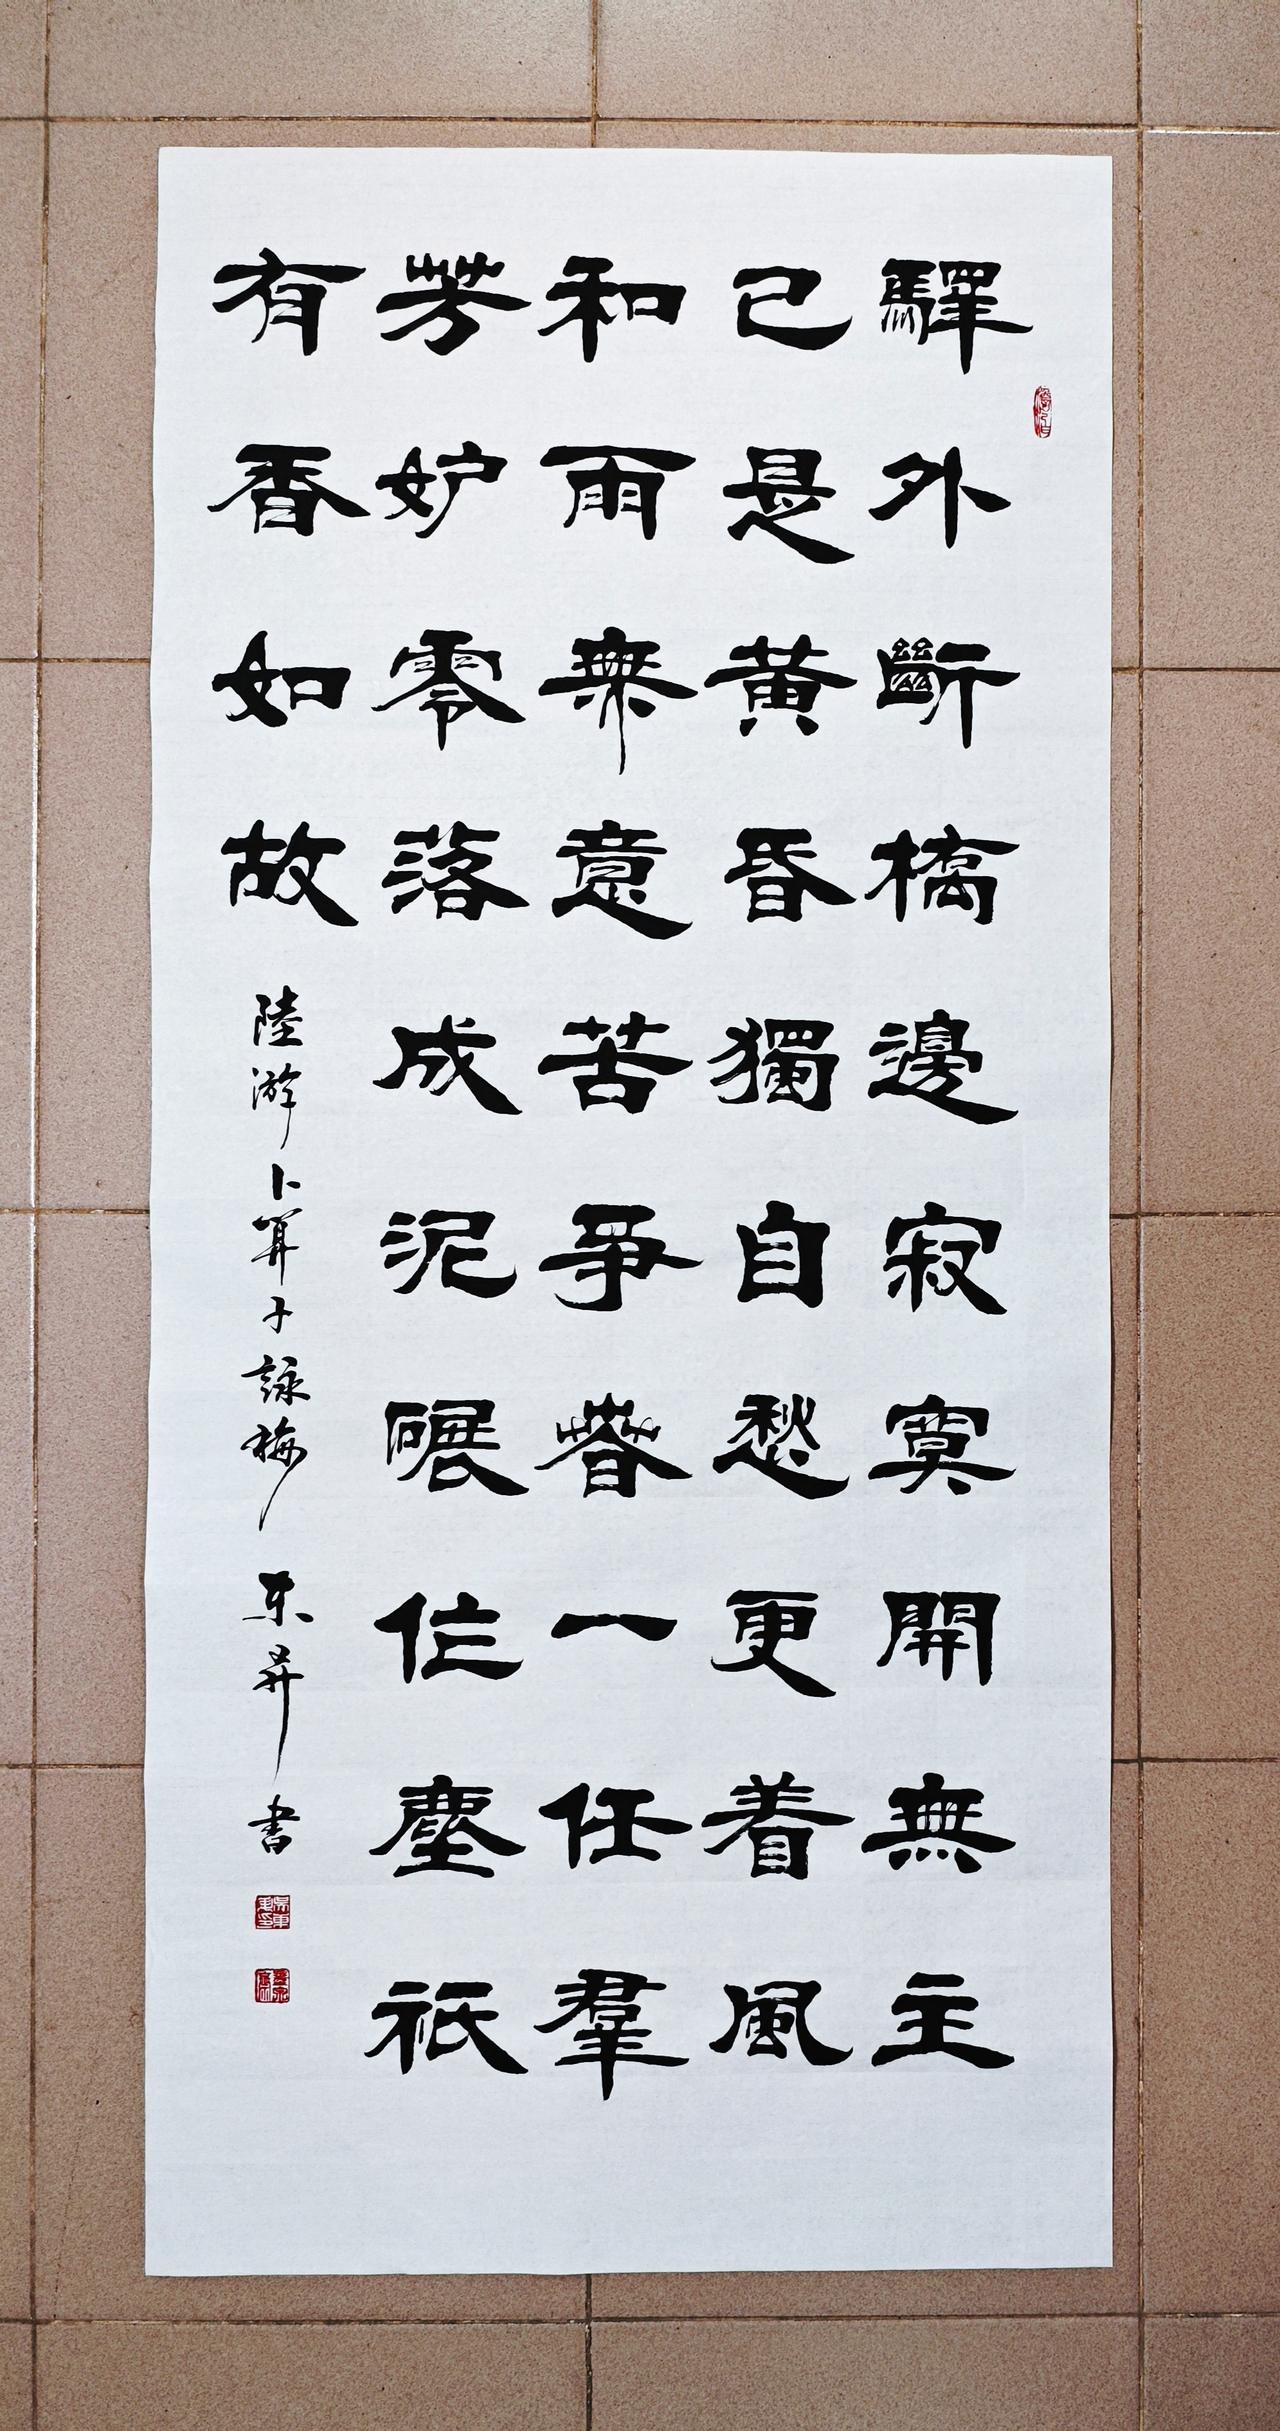 驛外斷橋邊寂寞開無主
已是黃昏獨自愁更着風
和雨無意苦爭春一任羣
芳妒零落成泥碾作塵祇
有香如故
陸游卜算子詠梅 东昇书